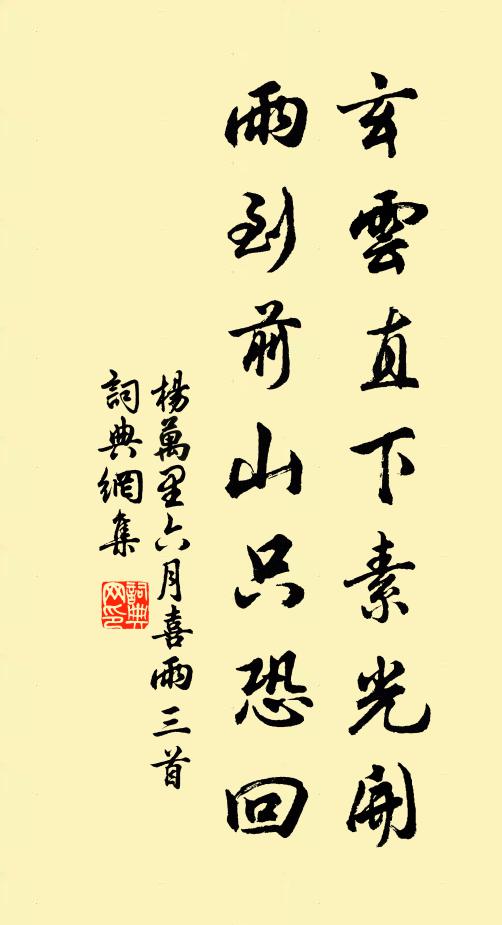 玄雲直下素光開
雨到前山只恐回
楊萬里六月喜雨三首
詞典網集
詞典
网印